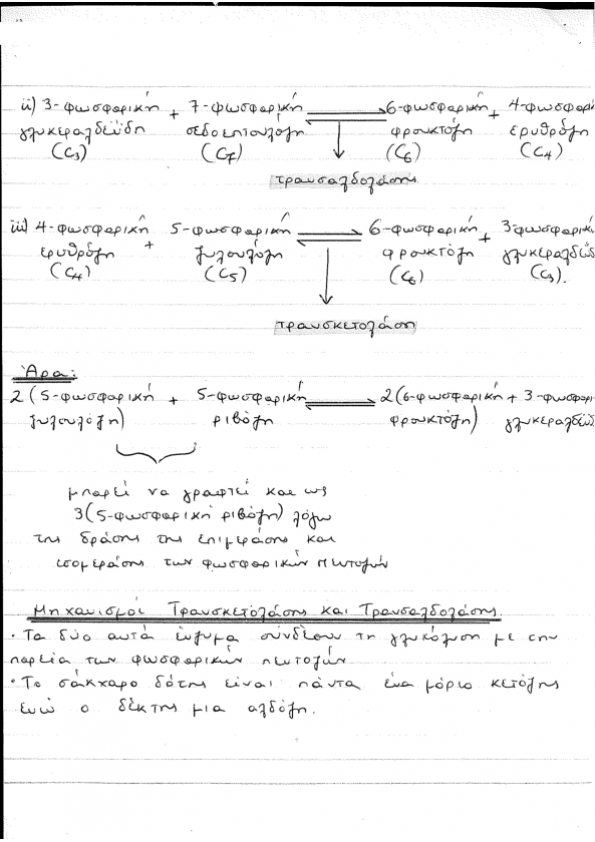 ii) 3-φωσφορική + 7-φωσφορική ⇌ 6-φωσφορική + 4-φωσφορ
γλυκεραλδεϋδη σεδοεπτουλόζη ↓ φρουκτόζη ερυθρόζη
(C3) (C7) (C6) (C4)
τρανσαλδολάση
iii) 4-φωσφορική + 5-φωσφορική ⇌ 6-φωσφορική + 3-φωσφορικ
ερυθρόζη ξυλουλόζη φρουκτόζη γλυκεραλδεϋ
(C4) (C5) ↓ (C6) (C3).
τρανσκετολάση
Άρα:
2 (5-φωσφορική + 5-φωσφορική ⇌ 2(6-φωσφορική + 3-φωσφορ
ξυλουλόζη) ριβόζη φρουκτόζη) γλυκεραλδεϋδ
μπορεί να γραφτεί και ως
3(5-φωσφορική ριβόζη) λόγω
της δράσης της επιμεράσης και
ισομεράσης των φωσφορικών πεντοζών
Μηχανισμοί Τρανσκετολάσης και Τρανσαλδολάσης
· Τα δύο αυτά ένζυμα συνδέουν τη γλυκόλυση με την
πορεία των φωσφορικών πεντοζών
· Το σάκχαρο δότης είναι πάντα ένα μόριο κετόζης
ενώ ο δέκτης μια αλδόζη.